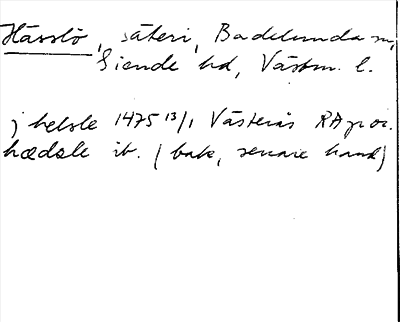 Hässlö, säteri, Badelunda sn,
Siende hd, Västm. l.
j hetsle 1475 13/1 Västerås RA p or.
hædsle ib. (bak, senare hand)